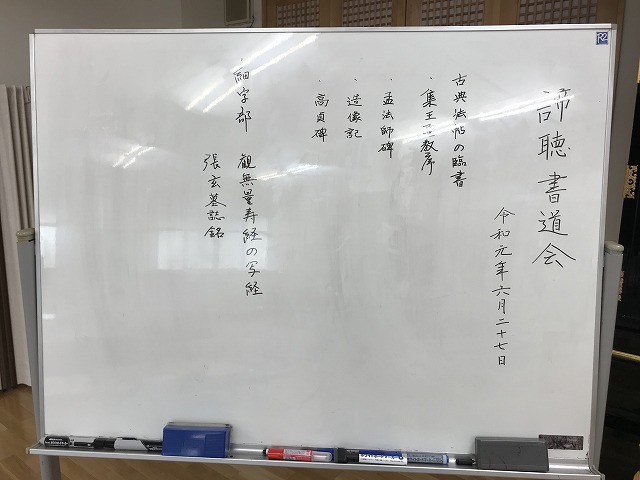 諦聴書道会
令和元年六月二十七日
古典法帖の臨書
・集王聖教序
・孟法師碑
・造像記
・高貞碑
・細字部
観無量寿経の写経
張玄墓誌銘